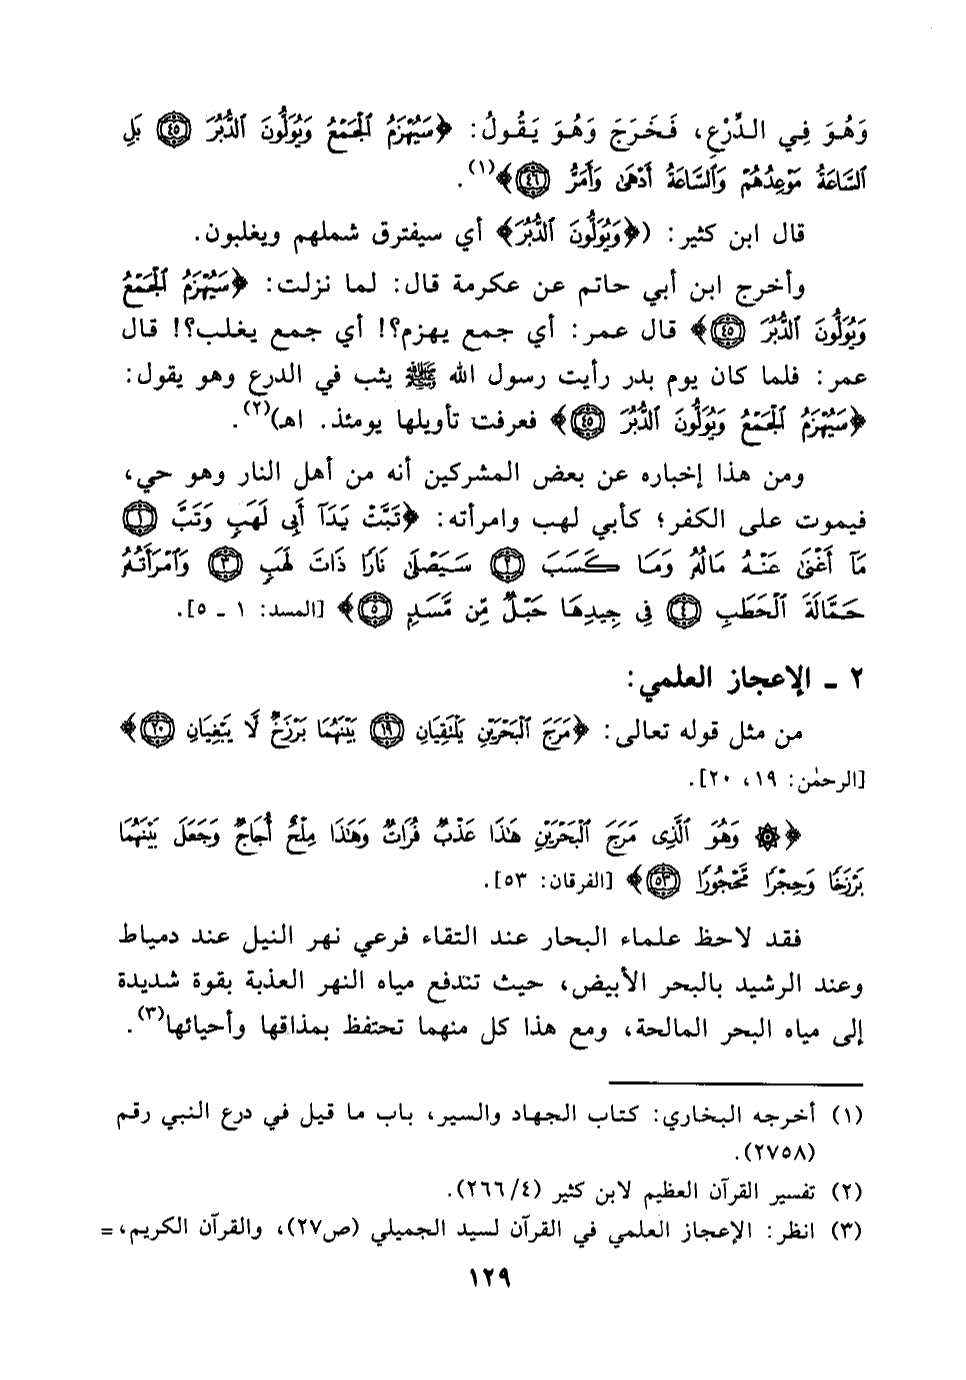 وَهُوَ فِي الدِّرْعِ، فَخَرَجَ وَهُوَ يَقُولُ: ﴿سَيُهْزَمُ ٱلْجَمْعُ وَيُوَلُّونَ ٱلدُّبُرَ ﴿٤٥﴾ بَلِ
ٱلسَّاعَةُ مَوْعِدُهُمْ وَٱلسَّاعَةُ أَدْهَىٰ وَأَمَرُّ ﴿٤٦﴾﴾(١).
قال ابن كثير: (﴿وَيُوَلُّونَ ٱلدُّبُرَ﴾ أي سيفترق شملهم ويغلبون.
وأخرج ابن أبي حاتم عن عكرمة قال: لما نزلت: ﴿سَيُهْزَمُ ٱلْجَمْعُ
وَيُوَلُّونَ ٱلدُّبُرَ ﴿٤٥﴾﴾ قال عمر: أي جمع يهزم؟! أي جمع يغلب؟! قال
عمر: فلما كان يوم بدر رأيت رسول الله ﷺ يثب في الدرع وهو يقول:
﴿سَيُهْزَمُ ٱلْجَمْعُ وَيُوَلُّونَ ٱلدُّبُرَ ﴿٤٥﴾﴾ فعرفت تأويلها يومئذ. اهـ)(٢).
ومن هذا إخباره عن بعض المشركين أنه من أهل النار وهو حي،
فيموت على الكفر؛ كأبي لهب وامرأته: ﴿تَبَّتْ يَدَآ أَبِى لَهَبٍ وَتَبَّ ﴿١﴾
مَآ أَغْنَىٰ عَنْهُ مَالُهُۥ وَمَا كَسَبَ ﴿٢﴾ سَيَصْلَىٰ نَارًا ذَاتَ لَهَبٍ ﴿٣﴾ وَٱمْرَأَتُهُۥ
حَمَّالَةَ ٱلْحَطَبِ ﴿٤﴾ فِى جِيدِهَا حَبْلٌ مِّن مَّسَدٍۭ ﴿٥﴾﴾ [المسد: ١ ـ ٥].
٢ ـ الإعجاز العلمي:
من مثل قوله تعالى: ﴿مَرَجَ ٱلْبَحْرَيْنِ يَلْتَقِيَانِ ﴿١٩﴾ بَيْنَهُمَا بَرْزَخٌ لَّا يَبْغِيَانِ ﴿٢٠﴾﴾
[الرحمٰن: ١٩، ٢٠].
﴿۞ وَهُوَ ٱلَّذِى مَرَجَ ٱلْبَحْرَيْنِ هَٰذَا عَذْبٌ فُرَاتٌ وَهَٰذَا مِلْحٌ أُجَاجٌ وَجَعَلَ بَيْنَهُمَا
بَرْزَخًا وَحِجْرًا مَّحْجُورًا ﴿٥٣﴾﴾ [الفرقان: ٥٣].
فقد لاحظ علماء البحار عند التقاء فرعي نهر النيل عند دمياط
وعند الرشيد بالبحر الأبيض، حيث تندفع مياه النهر العذبة بقوة شديدة
إلى مياه البحر المالحة، ومع هذا كل منهما تحتفظ بمذاقها وأحيائها(٣).
(١) أخرجه البخاري: كتاب الجهاد والسير، باب ما قيل في درع النبي رقم
(٢٧٥٨).
(٢) تفسير القرآن العظيم لابن كثير (٢٦٦/٤).
(٣) انظر: الإعجاز العلمي في القرآن لسيد الجميلي (ص٢٧)، والقرآن الكريم، =
١٢٩